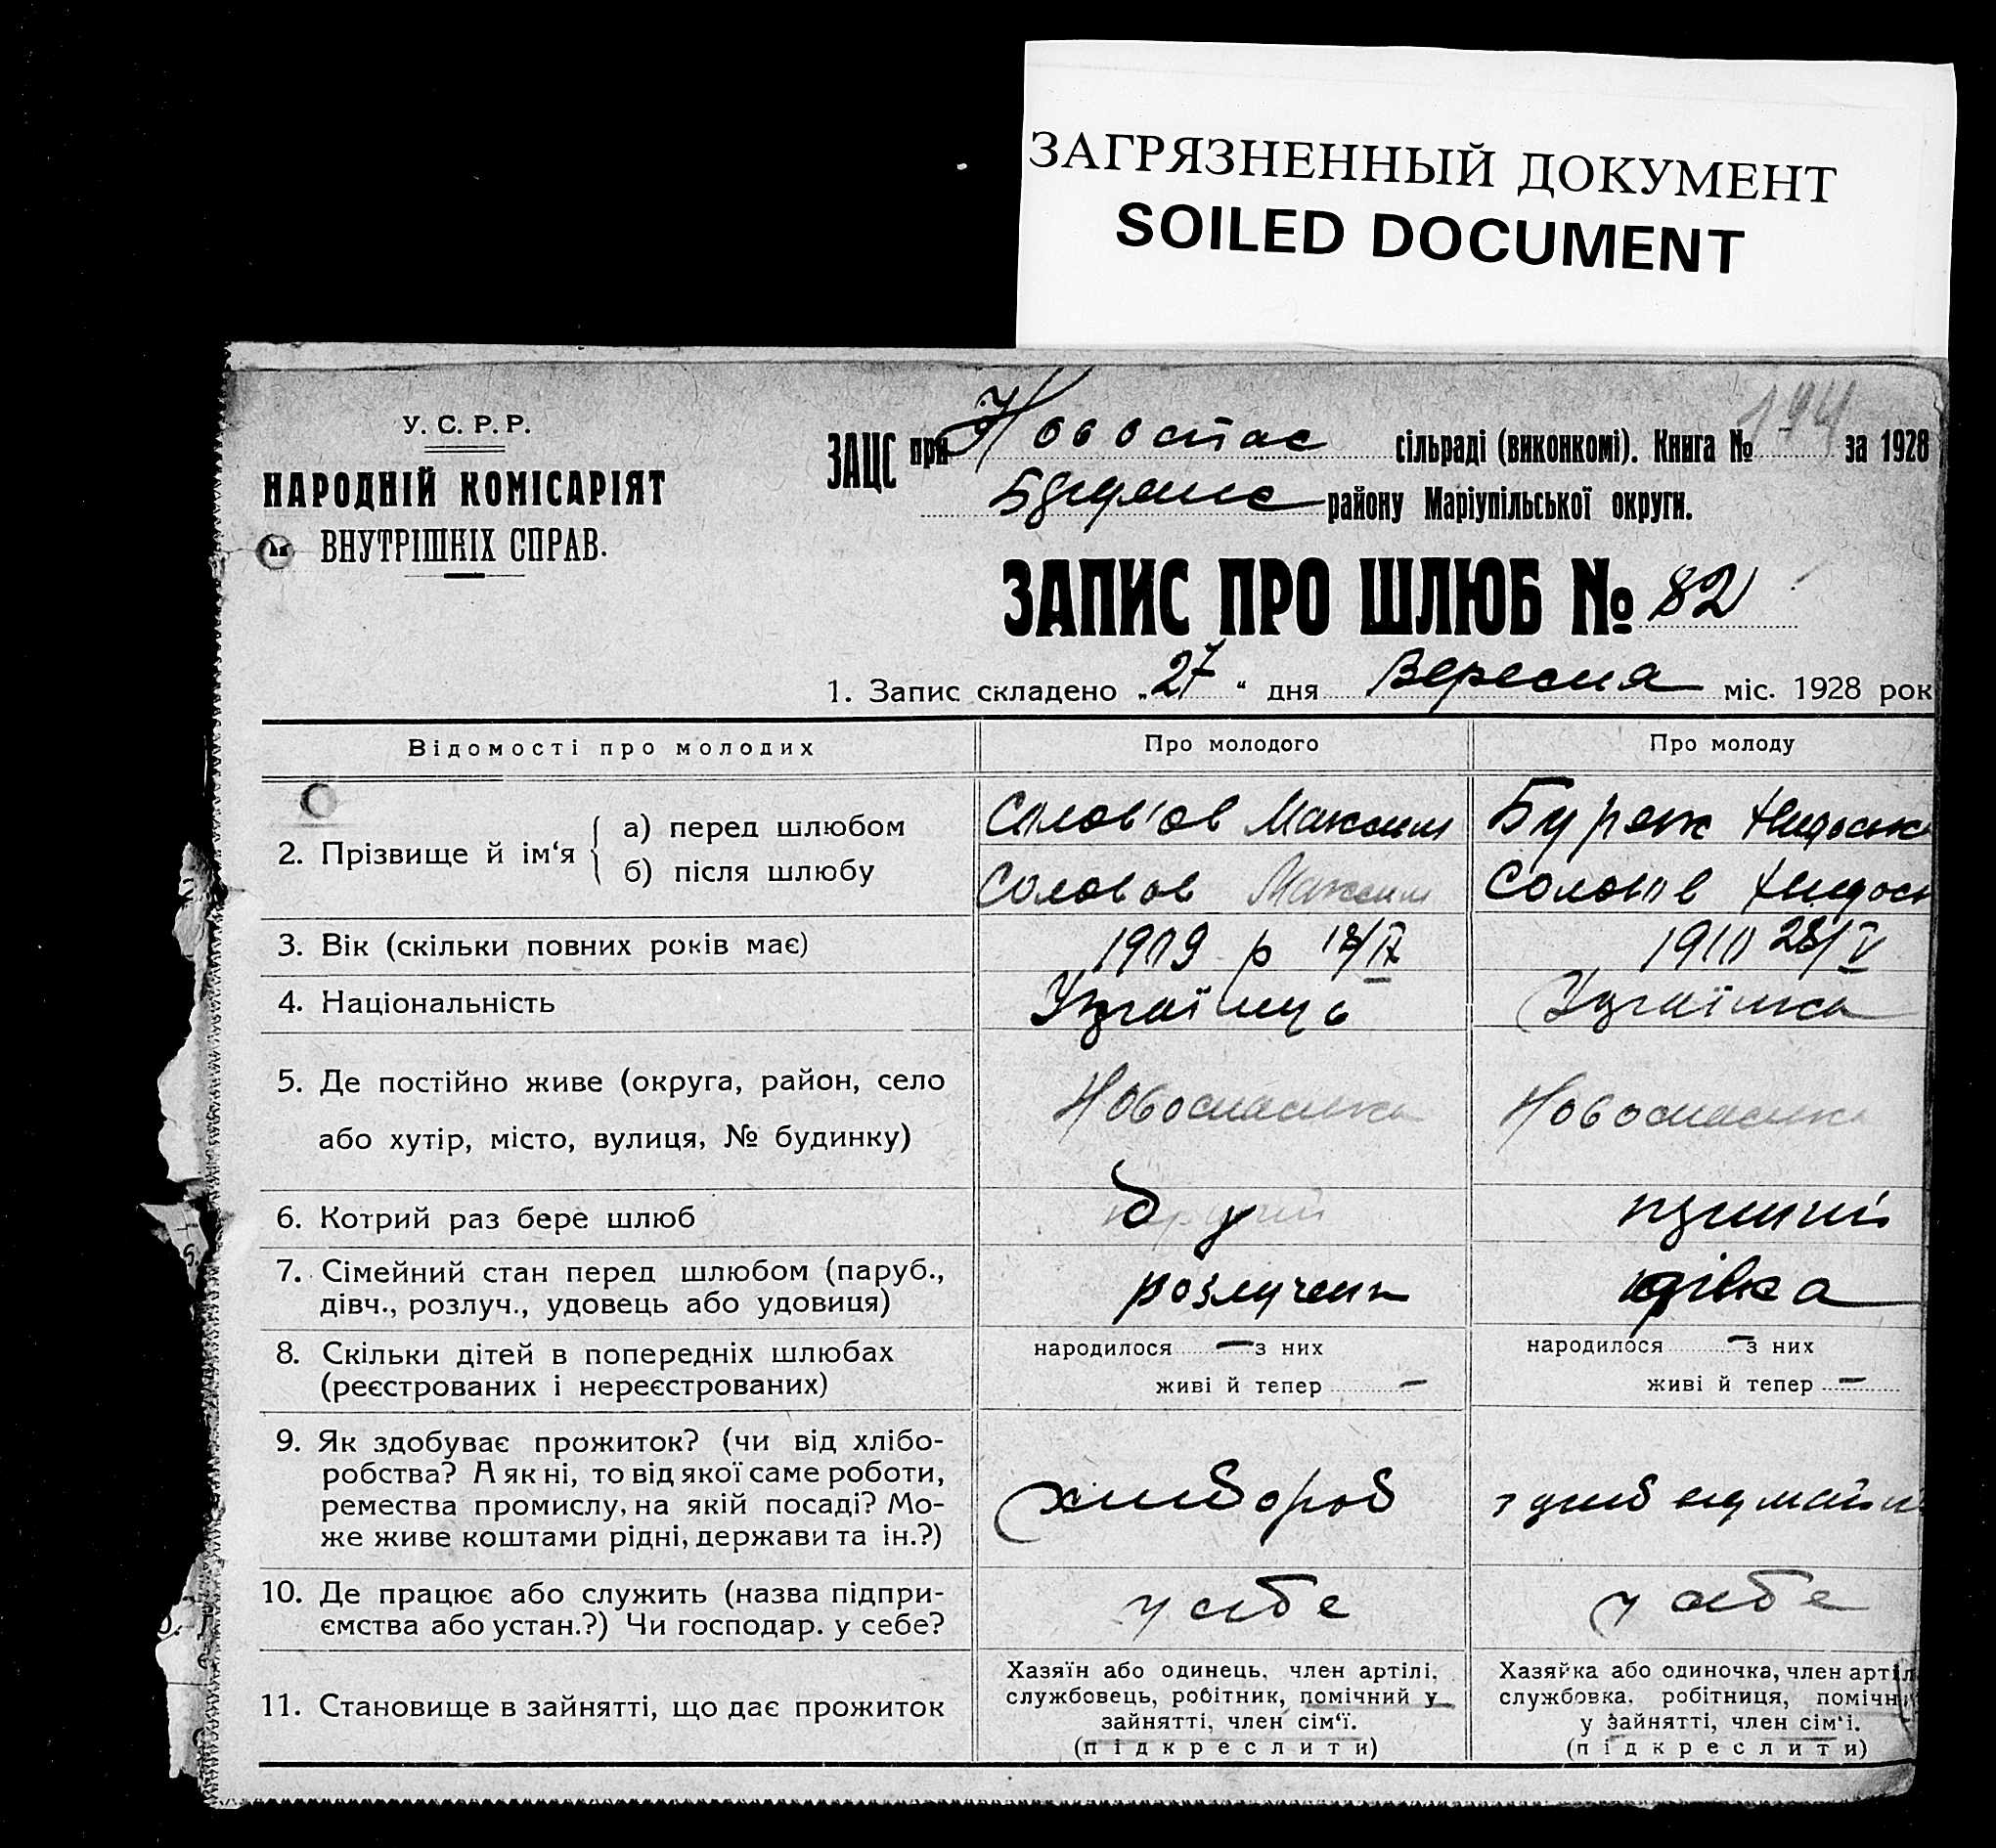 ЗАГРЯЗНЕННЫЙ ДОКУМЕНТ
SOILED DOCUMENT
У. С. Р. Р.
НАРОДНІЙ КОМІСАРІЯТ
ВНУТРІШНІХ СПРАВ.
ЗАЦС при Новоспас сільраді (виконкомі). Книга № 194 за 1928
району Маріупільської округи.
ЗАПИС ПРО ШЛЮБ № 82
1. Запис складено „27“ дня Вересня міс. 1928 рок
Відомості про молодих
Про молодого
Про молоду
2. Прізвище й ім‘я
а) перед шлюбом
Солов'ов Максим
б) після шлюбу
Соловов Максим
3. Вік (скільки повних років має)
1909 р
4. Національність
Українець
Українка
5. Де постійно живе (округа, район, село
або хутір, місто, вулиця, № будинку)
Новоспаська
Новоспаська
6. Котрий раз бере шлюб
7. Сімейний стан перед шлюбом (паруб.,
дівч., розлуч., удовець або удовиця)
розлучен
дівка
8. Скільки дітей в попередніх шлюбах
(реєстрованих і нереєстрованих)
народилося — з них
живі й тепер —
народилося — з них
живі й тепер —
9. Як здобуває прожиток? (чи від хлібо-
робства? А як ні, то від якої саме роботи,
ремества промислу, на якій посаді? Мо-
же живе коштами рідні, держави та ін.?)
хлибороб
10. Де працює або служить (назва підпри-
ємства або устан.?) Чи господар. у себе?
у себе
у себе
11. Становище в зайнятті, що дає прожиток
Хазяїн або одинець, член артілі,
службовець, робітник, помічний у
зайнятті, член сім‘ї.
(підкреслити)
Хазяйка або одиночка, член артіл
службовка, робітниця, помічн
у зайнятті, член сім‘і.
(підкреслити)